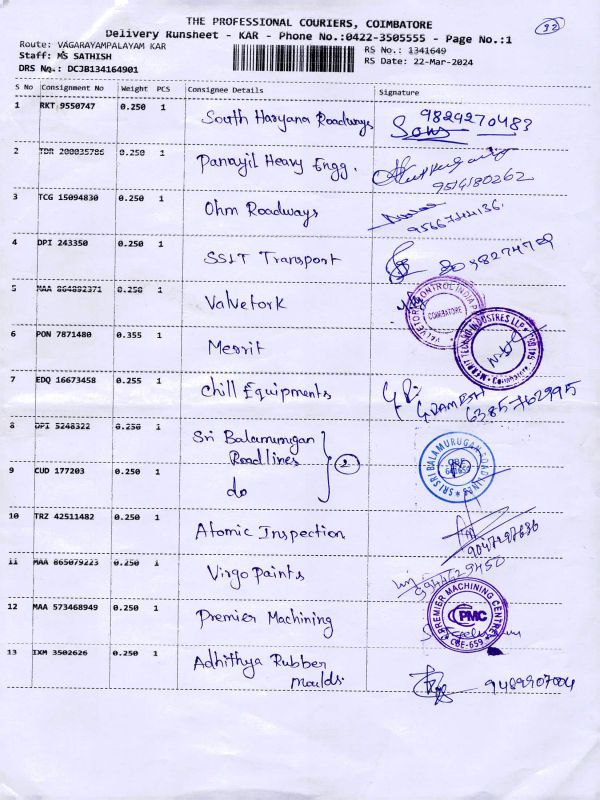 THE PROFESSIONAL COURIERS, COIMBATORE
32
Delivery Runsheet - KAR - Phone No.:0422-3505555 - Page No.:1
Route: VAGARAYAMPALAYAM KAR
RS No.: 1341649
Staff: MS SATHISH
RS Date: 22-Mar-2024
DRS No.: DCJB134164901
S No Consignment No Weight PCS Consignee Details Signature
1 RKT 9550747 0.250 1 South Haryana Roadways 9829270483
2 TDR 200035786 0.250 1 Panayil Heavy Engg. 9514180262
3 TCG 15094830 0.250 1 Ohm Roadways
4 DPI 243350 0.250 1 SSIT Transport
5 MAA 864892371 0.250 1 Valvetork
VALVETORK CONTROL INDIA COIMBATORE
6 PON 7871480 0.355 1 Merrit
7 EDQ 16673458 0.255 1 Chill Equipments 6385762995
8 DPI 5248322 0.250 1 Sri Balamurugan
Roadlines 2
SRI BALAMURUGAN ROAD LINES
9 CUD 177203 0.250 1 do
10 TRZ 42511482 0.250 1 Atomic Inspection 9047297636
11 MAA 865079223 0.250 1 Virgo Paints 9944629450
12 MAA 573468949 0.250 1 Premier Machining
PREMIER MACHINING CENTRE PMC CBE-659
13 IXM 3502626 0.250 1 Adhithya Rubber
Moulds. 9489907004